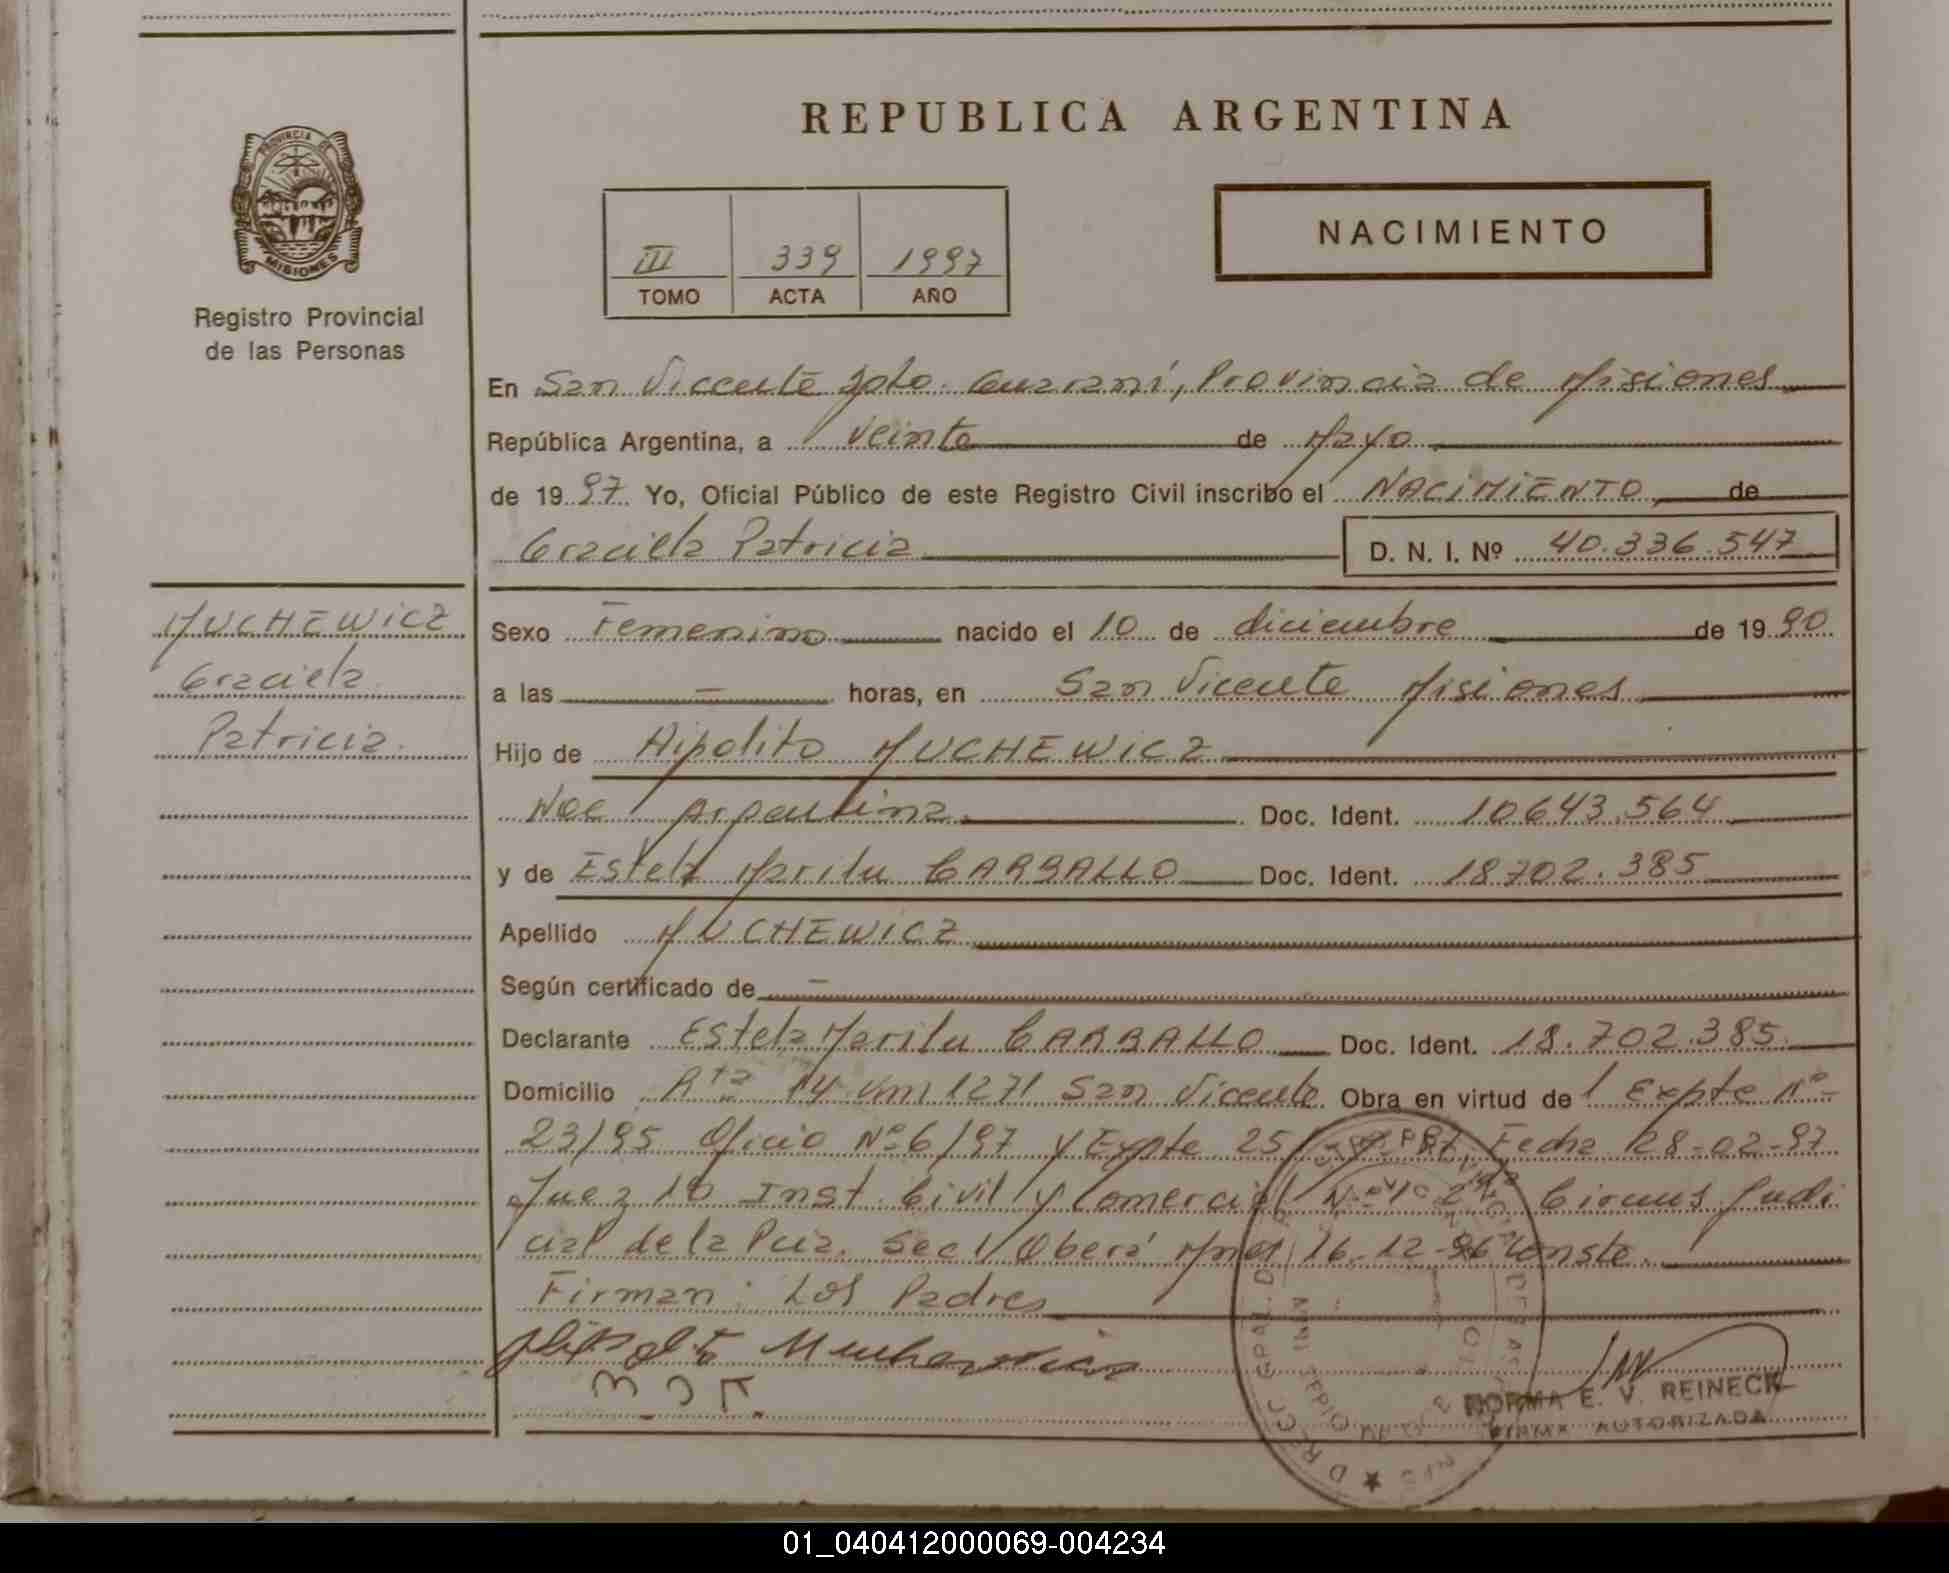 REPUBLICA ARGENTINA
PROVINCIA DE
MISIONES
Registro Provincial
de las Personas
III 339 1997
TOMO ACTA AÑO
NACIMIENTO
En San Viccente Dpto. Guaraní, Provincia de Misiones
República Argentina, a Veinte de Mayo
de 1997 Yo, Oficial Público de este Registro Civil inscribo el NACIMIENTO de
Graciela Patricia D. N. I. Nº 40.336.547
MUCHEWICZ
Graciela
Patricia.
Sexo Femenino nacido el 10 de diciembre de 1990
a las - horas, en San Vicente Misiones
Hijo de Hipolito MUCHEWICZ
Nac Argentina Doc. Ident. 10643.564
y de Estela Marilu CARBALLO Doc. Ident. 18702.385
Apellido MUCHEWICZ
Según certificado de -
Declarante Estela Marilu CARBALLO Doc. Ident. 18.702.385
Domicilio Rta 14 Km 1271 San Vicente Obra en virtud de Expte Nº
23/95 Oficio Nº 6/97 y Expte 25 Fecha 28-02-97
Juez 1º Inst. Civil y Comercial Nº 1 2da Circuns Judi
cial de la Pcia. Sec 1 Oberá Mnes 16-12-96 Conste.
Firman: Los Padres
Hipolito Muchewicz
NORMA E. V. REINECK
FIRMA AUTORIZADA
01_040412000069-004234